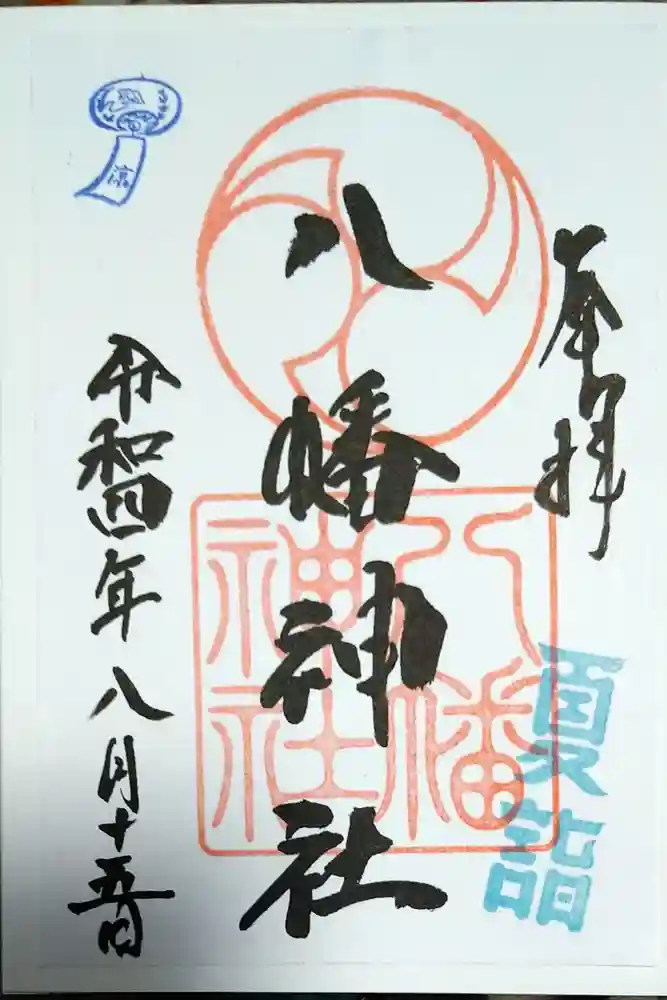 奉拝
八幡神社
八幡神社
夏詣
令和四年八月十五日
涼